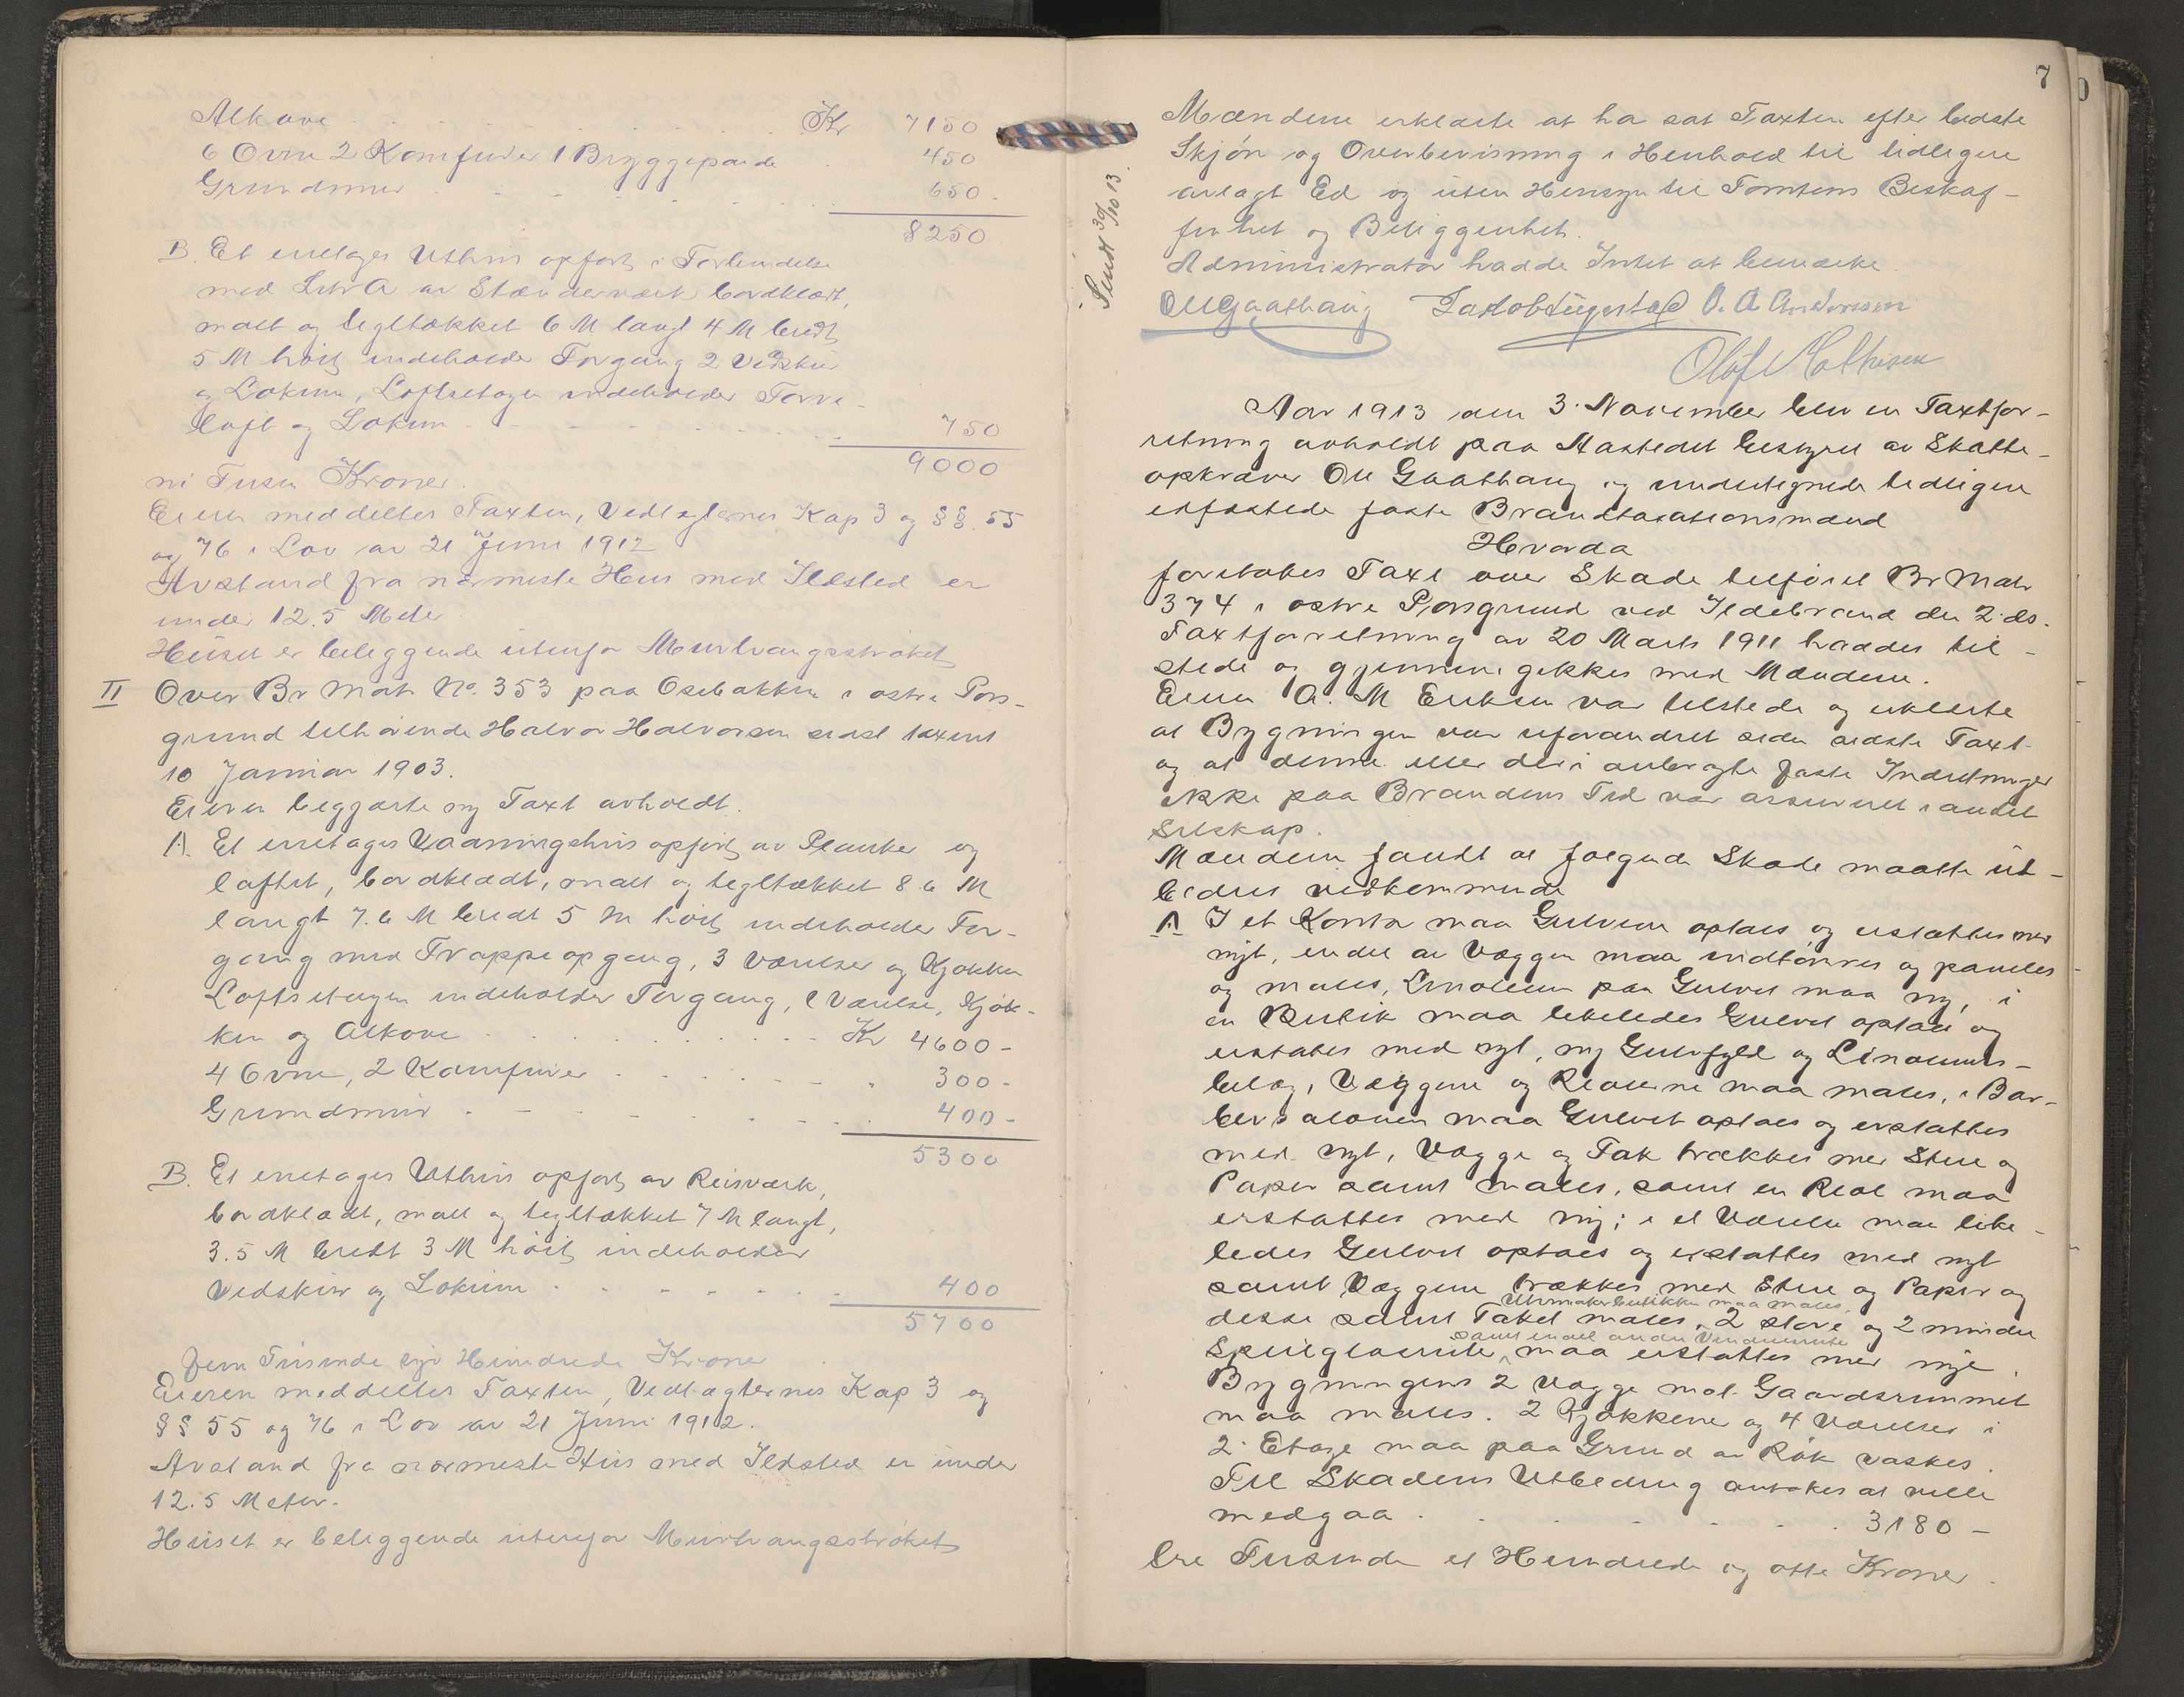 Alkove . . . . . . . . Kr 7150
6 Ovne 2 Komfurer 1 Bryggepande . 450
Grundmur . . . . . . 650.
8250
B. Et enetages Uthus opført i Forbindelse
med Litr A av Stændervært bordklædt,
malt og tegltækket 6 M langt 4 M bredt
5 M høit, indeholder Forgang 2 Vedskur
og Lokum, Loftsetagen indeholder Tørre-
loft og Lokum . . . . . . 750
9000
ni Tusen Kroner.
Eieren meddeltes Taxten, Vedtægternes Kap 3 og §§. 55
og 76 i Lov av 21 Juni 1912
Avstand fra nærmeste Hus med Ildsted er
under 12.5 Meter
Huset er beleggende utenfor Murtvangsstrøket
II Over Br Matr No. 353 paa Osebakken i østre Pors-
grund tilhørende Halvor Halvorsen sidst taxert
10 Januar 1903.
Eieren begjærte ny Taxt avholdt.
A. Et enetages Vaaningshus opført av Planker og
laftet, bordklædt, malt og tegltækket 8.6 M
langt 7.6 M bredt 5 M høit, indeholder For-
gang med Trappeopgang, 3 Værelser og Kjøkken
Loftsetagen indeholder Forgang, 1 Værelse, Kjøk-
ken og Alkove . . . . . . Kr 4600-
4 Ovne, 2 Komfurer . . . . . . 300-
Grundmur . . . . . . 400-
5300
B. Et enetages Uthus opført av Reisværk,
bordklædt, malt og tegltækket 7 M langt,
3.5 M bredt 3 M høit, indeholder
Vedskur og Lokum . . . . . . 400
5700
fem Tusinde syv Hundrede Kroner
Eieren meddeltes Taxten, Vedtægternes Kap 3 og
§§ 55 og 76 i Lov av 21 Juni 1912.
Avstand fra nærmeste Hus med Ildsted er under
12.5 Meter.
Huset er beliggende utenfor Murtvangsstrøket
7
Sendt 30/10 13.
Mændene erklærte at ha sat Taxten efter bedste
Skjøn og Overbevisning i Henhold til tidligere
avlagt Ed og uten Hensyn til Tomtens Beskaf-
fenhet og Beliggenhet.
Administrator hadde Intet at bemærke
Ole Gaathaug Jakob Lügerstad O. A Andersen
Olaf Mathisen
Aar 1913 den 3. November blev en Taxtfor-
retning avholdt paa Aastedet bestyret av Skatte-
opkræver Ole Gaathaug og undertegnede tidligere
edfæstede faste Brandtaxationsmænd
Hvorda
foretokes Taxt over Skade tilføiet Br Matr
374 i østre Porsgrund ved Ildebrand den 2 ds.
Taxtforretning av 20 Marts 1911 hadde til-
stede og gjennemgikkes med Mændene.
Eieren A. M Eriksen var tilstede og erklærte
at Bygningen var uforandret siden sidste Taxt
og at denne eller deri anbragte faste Indretninger
ikke paa Brandens Tid var assureret i andet
Selskap.
Mændene fandt at følgende Skade maatte ut-
bedres vedkommende
A I et Kontor maa Gulvene optaes og erstattes med
nyt, endel av Væggen maa utdtømres og paneles
og males, Linoleum paa Gulvet maa ny, i
en Butik maa likeledes Gulvet optaes og
erstattes med nyt, ny Gulvfyld og Linoleums-
belæg, Væggene og Reolerne maa males, i Bar-
bersalonen maa Gulvet optaes og erstattes
med nyt, Vægge og Tak trækkes med Strie og
Papir samt males, samt en Reol maa
erstattes med ny; i et Værelse maa like-
ledes Gulvet optaes og erstattes med nyt
samt Væggene trækkes med Strie og Papir og
Uhrmakerbutikken maa males,
desse samt Taket males. 2 store og 2 mindre
samt endel andre Vindusruter
Speilglasruter, maa erstattes med nye
Bygningens 2 Vægge mot Gaardsrummet
maa males. 2 Kjøkkener og 4 Værelser i
2. Etage maa paa Grund av Røk vaskes.
Til Skadens Utbedring antokes at ville
medgaa . . . . . . 3180-
tre Tusinde et Hundrede og otte Kroner.